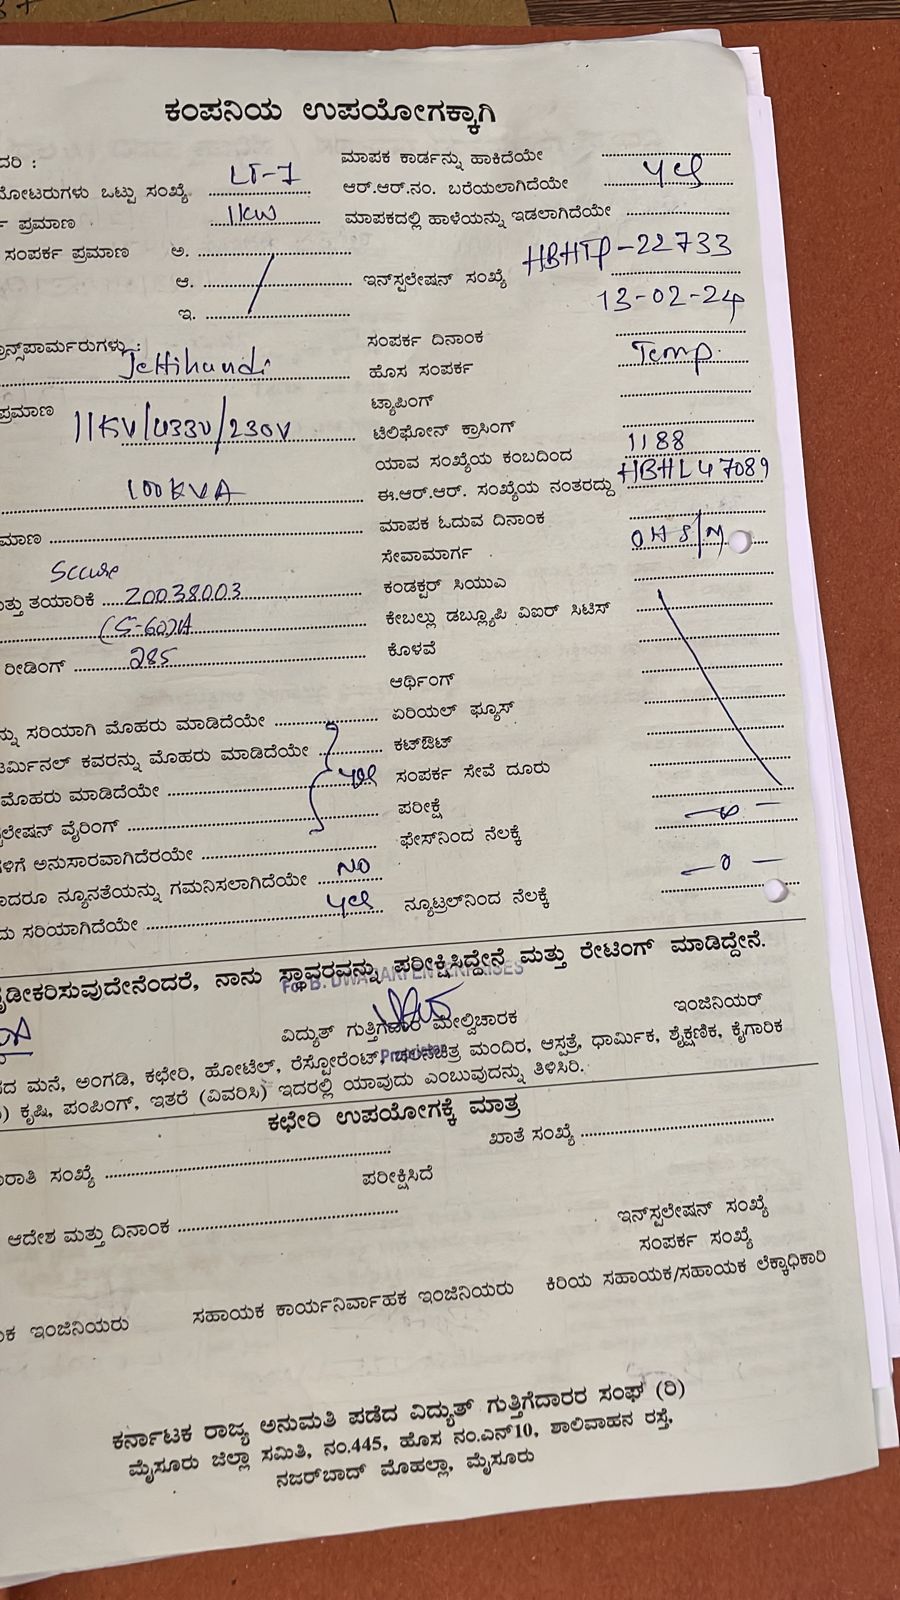 ಕಂಪನಿಯ ಉಪಯೋಗಕ್ಕಾಗಿ
ದರಿ : ಮಾಪಕ ಕಾರ್ಡನ್ನು ಹಾಕಿದೆಯೇ
ಮೋಟರುಗಳು ಒಟ್ಟು ಸಂಖ್ಯೆ LT-7 ಆರ್.ಆರ್.ನಂ. ಬರೆಯಲಾಗಿದೆಯೇ yes
ಪ್ರಮಾಣ 1KW ಮಾಪಕದಲ್ಲಿ ಹಾಳೆಯನ್ನು ಇಡಲಾಗಿದೆಯೇ
ಸಂಪರ್ಕ ಪ್ರಮಾಣ ಅ.
ಆ. ಇನ್‌ಸ್ಟಲೇಷನ್ ಸಂಖ್ಯೆ HBHTP-22733
ಇ. 13-02-24
ಟ್ರಾನ್ಸ್‌ಪಾರ್ಮರುಗಳು : ಸಂಪರ್ಕ ದಿನಾಂಕ
Jettihundi ಹೊಸ ಸಂಪರ್ಕ Temp.
ಪ್ರಮಾಣ ಟ್ಯಾಪಿಂಗ್
11KV/433V/230V ಟೆಲಿಫೋನ್ ಕ್ರಾಸಿಂಗ್
ಯಾವ ಸಂಖ್ಯೆಯ ಕಂಬದಿಂದ 1188
100KVA ಈ.ಆರ್.ಆರ್. ಸಂಖ್ಯೆಯ ನಂತರದ್ದು HBHL47089
ಮಾಣ ಮಾಪಕ ಓದುವ ದಿನಾಂಕ
Secure ಸೇವಾಮಾರ್ಗ OH S/M
ತ್ತು ತಯಾರಿಕೆ 20038003 ಕಂಡಕ್ಟರ್ ಸಿಯುವಿ
(5-60)A ಕೇಬಲ್ಲು ಡಬ್ಲ್ಯೂಪಿ ವಿಐರ್ ಸಿಟಿಸ್
ರೀಡಿಂಗ್ 285 ಕೊಳವೆ
ಆರ್ಥಿಂಗ್
ನ್ನು ಸರಿಯಾಗಿ ಮೊಹರು ಮಾಡಿದೆಯೇ ಏರಿಯಲ್ ಫ್ಯೂಸ್
ಟರ್ಮಿನಲ್ ಕವರನ್ನು ಮೊಹರು ಮಾಡಿದೆಯೇ ಕಟ್‌ಔಟ್
ಮೊಹರು ಮಾಡಿದೆಯೇ yes ಸಂಪರ್ಕ ಸೇವೆ ದೂರು
ಲೇಷನ್ ವೈರಿಂಗ್ ಪರೀಕ್ಷೆ
ಳಿಗೆ ಅನುಸಾರವಾಗಿದೆರಯೇ ಫೇಸ್‌ನಿಂದ ನೆಲಕ್ಕೆ —0—
ಾದರೂ ನ್ಯೂನತೆಯನ್ನು ಗಮನಿಸಲಾಗಿದೆಯೇ NO
ದು ಸರಿಯಾಗಿದೆಯೇ yes ನ್ಯೂಟ್ರಲ್‌ನಿಂದ ನೆಲಕ್ಕೆ —0—
ೃಡೀಕರಿಸುವುದೇನೆಂದರೆ, ನಾನು ಸ್ಥಾವರವನ್ನು ಪರೀಕ್ಷಿಸಿದ್ದೇನೆ ಮತ್ತು ರೇಟಿಂಗ್ ಮಾಡಿದ್ದೇನೆ.
For B. DWARAKI ENTERPRISES
ವಿದ್ಯುತ್ ಗುತ್ತಿಗೆದಾರ ಮೇಲ್ವಿಚಾರಕ ಇಂಜಿನಿಯರ್
ದ ಮನೆ, ಅಂಗಡಿ, ಕಛೇರಿ, ಹೋಟೆಲ್, ರೆಸ್ಟೋರೆಂಟ್, ಚಲನಚಿತ್ರ ಮಂದಿರ, ಆಸ್ಪತ್ರೆ, ಧಾರ್ಮಿಕ, ಶೈಕ್ಷಣಿಕ, ಕೈಗಾರಿಕ
) ಕೃಷಿ, ಪಂಪಿಂಗ್, ಇತರೆ (ವಿವರಿಸಿ) ಇದರಲ್ಲಿ ಯಾವುದು ಎಂಬುವುದನ್ನು ತಿಳಿಸಿರಿ.
ಕಛೇರಿ ಉಪಯೋಗಕ್ಕೆ ಮಾತ್ರ
ರಾತಿ ಸಂಖ್ಯೆ ಖಾತೆ ಸಂಖ್ಯೆ
ಪರೀಕ್ಷಿಸಿದೆ
ಆದೇಶ ಮತ್ತು ದಿನಾಂಕ ಇನ್‌ಸ್ಟಲೇಷನ್ ಸಂಖ್ಯೆ
ಸಂಪರ್ಕ ಸಂಖ್ಯೆ
ಕ ಇಂಜಿನಿಯರು ಸಹಾಯಕ ಕಾರ್ಯನಿರ್ವಾಹಕ ಇಂಜಿನಿಯರು ಕಿರಿಯ ಸಹಾಯಕ/ಸಹಾಯಕ ಲೆಕ್ಕಾಧಿಕಾರಿ
ಕರ್ನಾಟಕ ರಾಜ್ಯ ಅನುಮತಿ ಪಡೆದ ವಿದ್ಯುತ್ ಗುತ್ತಿಗೆದಾರರ ಸಂಘ (ರಿ)
ಮೈಸೂರು ಜಿಲ್ಲಾ ಸಮಿತಿ, ನಂ.445, ಹೊಸ ನಂ.ಎನ್10, ಶಾಲಿವಾಹನ ರಸ್ತೆ,
ನಜರ್‌ಬಾದ್ ಮೊಹಲ್ಲಾ, ಮೈಸೂರು